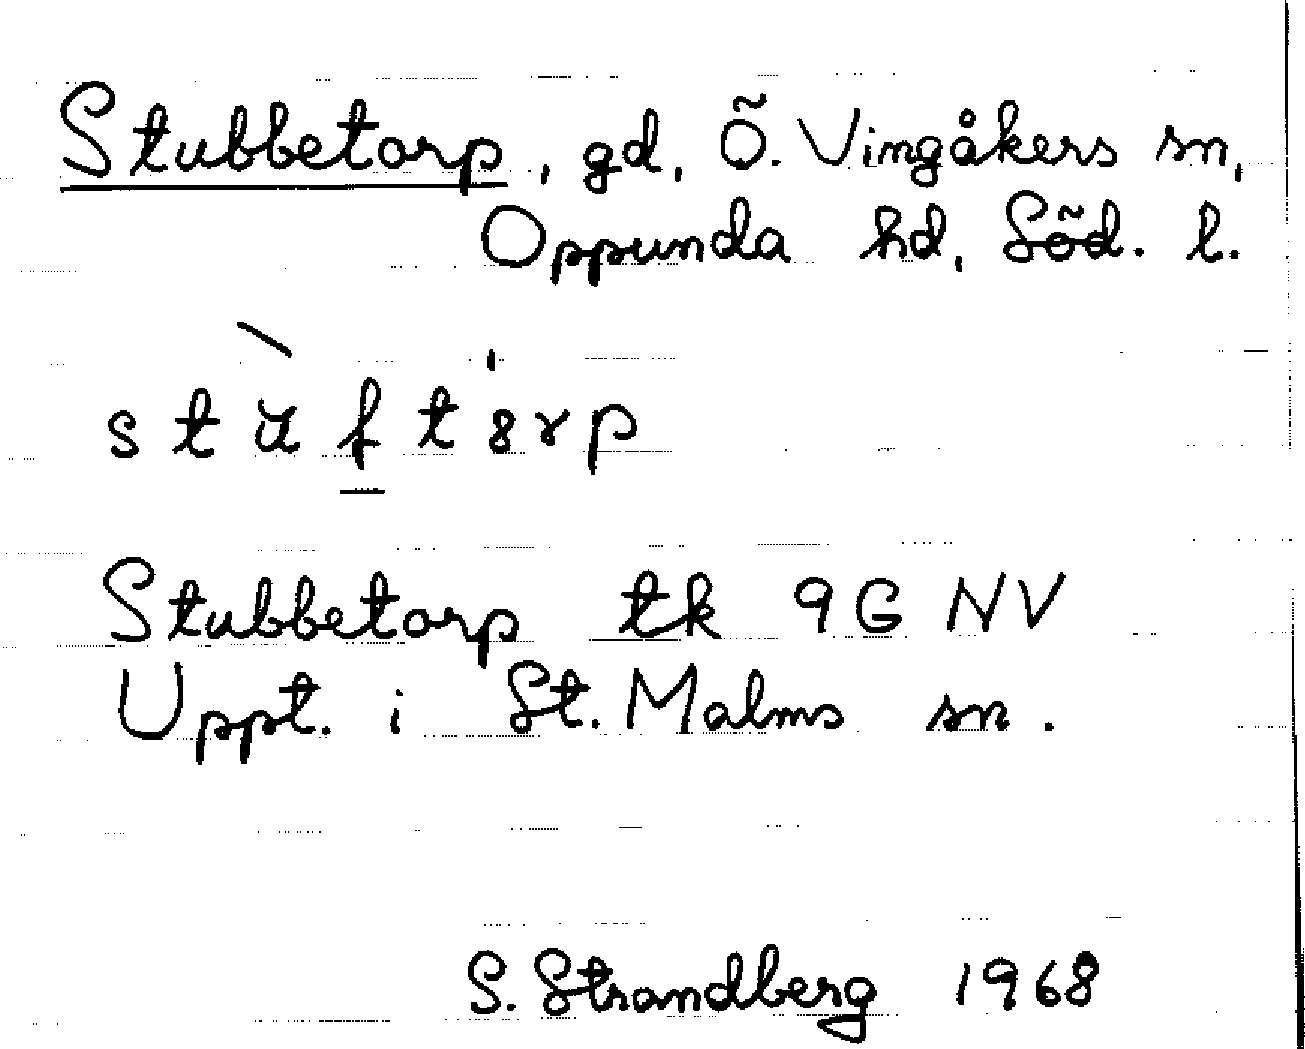 Stubbetorp, gd, Ö. Vingåkers sn,
Oppunda hd, Söd. l.
Stubbetorp tk 9G NV
Uppt. i St. Malms sn.
S. Strandberg 1968